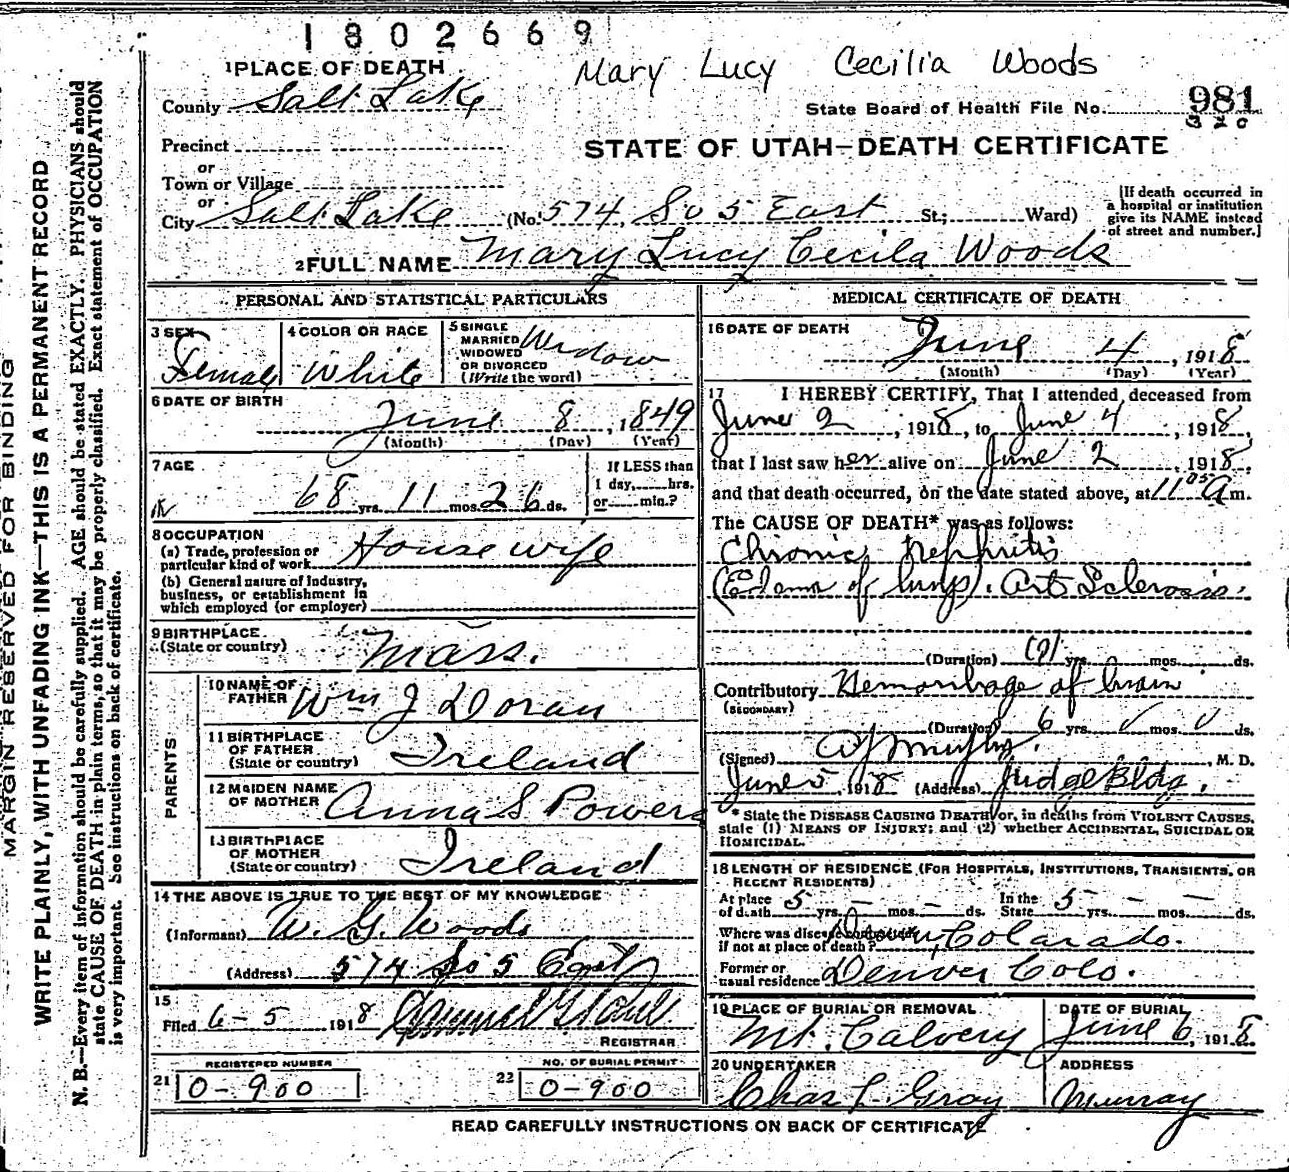 1802669
Mary Lucy Cecilia Woods
1 PLACE OF DEATH
County Salt Lake
State Board of Health File No. 981
Precinct
STATE OF UTAH—DEATH CERTIFICATE
or
Town or Village
or
City Salt Lake (No. 574, So 5 East St; Ward)
[If death occurred in
a hospital or institution
give its NAME instead
of street and number.]
2 FULL NAME Mary Lucy Cecila Woods
PERSONAL AND STATISTICAL PARTICULARS
3 SEX
Female
4 COLOR OR RACE
White
5 SINGLE
MARRIED
WIDOWED
OR DIVORCED
(Write the word)
Widow
6 DATE OF BIRTH
June 8, 1849
(Month) (Day) (Year)
7 AGE
68 yrs. 11 mos. 26 ds.
If LESS than
1 day, hrs.
or min.?
8 OCCUPATION
(a) Trade, profession or
particular kind of work Housewife
(b) General nature of Industry,
business, or establishment in
which employed (or employer)
9 BIRTHPLACE
(State or country)
Mass.
PARENTS
10 NAME OF
FATHER
Wm J Doran
11 BIRTHPLACE
OF FATHER
(State or country)
Ireland
12 MAIDEN NAME
OF MOTHER
Anna S Powers
13 BIRTHPLACE
OF MOTHER
(State or country)
Ireland
14 THE ABOVE IS TRUE TO THE BEST OF MY KNOWLEDGE
(Informant) W. G. Woods
(Address) 574 So 5 East
15
Filed 6-5 1918
REGISTRAR
REGISTERED NUMBER
21 0-900
NO. OF BURIAL PERMIT
22 0-900
MEDICAL CERTIFICATE OF DEATH
16 DATE OF DEATH
June 4, 1918
(Month) (Day) (Year)
17 I HEREBY CERTIFY, That I attended deceased from
June 2, 1918, to June 4, 1918,
that I last saw her alive on June 2, 1918,
and that death occurred, on the date stated above, at 11 05 A m.
The CAUSE OF DEATH* was as follows:
Chronic Nephritis
(Edema of lungs). Art Sclerosis.
(Duration) yrs. mos. ds.
Contributory Hemorrhage of brain
(SECONDARY)
(Duration) 6 yrs. mos. ds.
(Signed) Murphy, M. D.
June 5 1918 (Address) Judge Bldg.
* State the DISEASE CAUSING DEATH or, in deaths from VIOLENT CAUSES,
state (1) MEANS OF INJURY; and (2) whether ACCIDENTAL, SUICIDAL OR
HOMICIDAL.
18 LENGTH OF RESIDENCE (FOR HOSPITALS, INSTITUTIONS, TRANSIENTS, OR
RECENT RESIDENTS)
At place
of death 5 yrs. – mos. – ds.
In the
State 5 yrs. – mos. – ds.
Where was disease contracted
if not at place of death? Denver, Colarado.
Former or
usual residence Denver Colo.
19 PLACE OF BURIAL OR REMOVAL
Mt. Calvery
DATE OF BURIAL
June 6, 1918.
20 UNDERTAKER
Chas L Gray
ADDRESS
Murray
READ CAREFULLY INSTRUCTIONS ON BACK OF CERTIFICATE
MARGIN RESERVED FOR BINDING
WRITE PLAINLY, WITH UNFADING INK—THIS IS A PERMANENT RECORD
N. B.—Every item of information should be carefully supplied. AGE should be stated EXACTLY. PHYSICIANS should
state CAUSE OF DEATH in plain terms, so that it may be properly classified. Exact statement of OCCUPATION
is very important. See instructions on back of certificate.